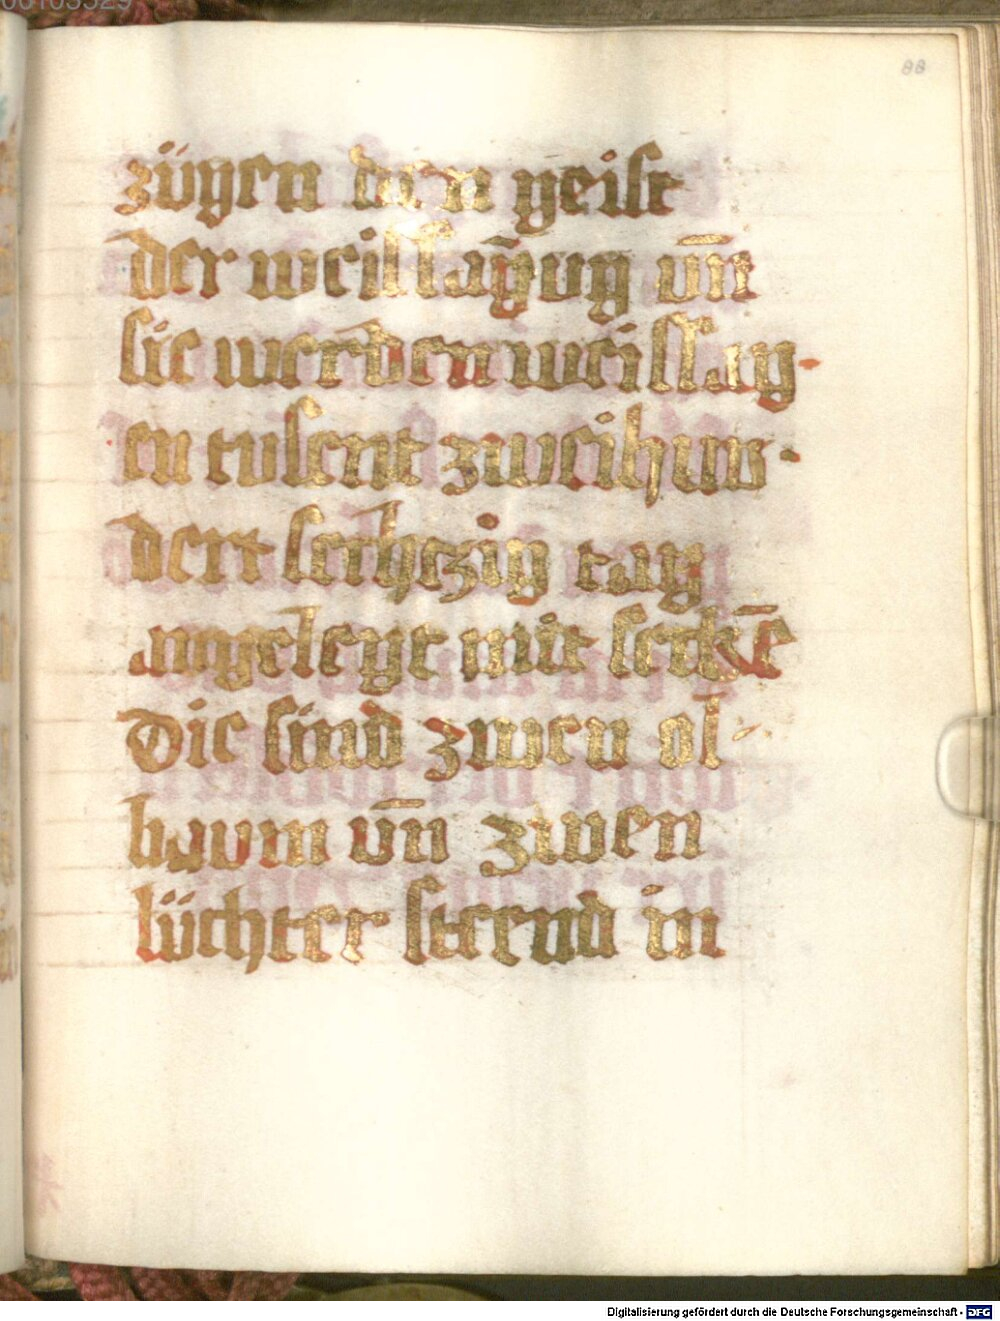 88
zügen den geist
der weissagūg vn̄
sie werden weissag
en tusent zweihun
dert sechczig tag
angeleyt mit seckē
Die sind zwen ol
baum vn̄ zwen
lüchter steend in
Digitalisierung gefördert durch die Deutsche Forschungsgemeinschaft - DFG